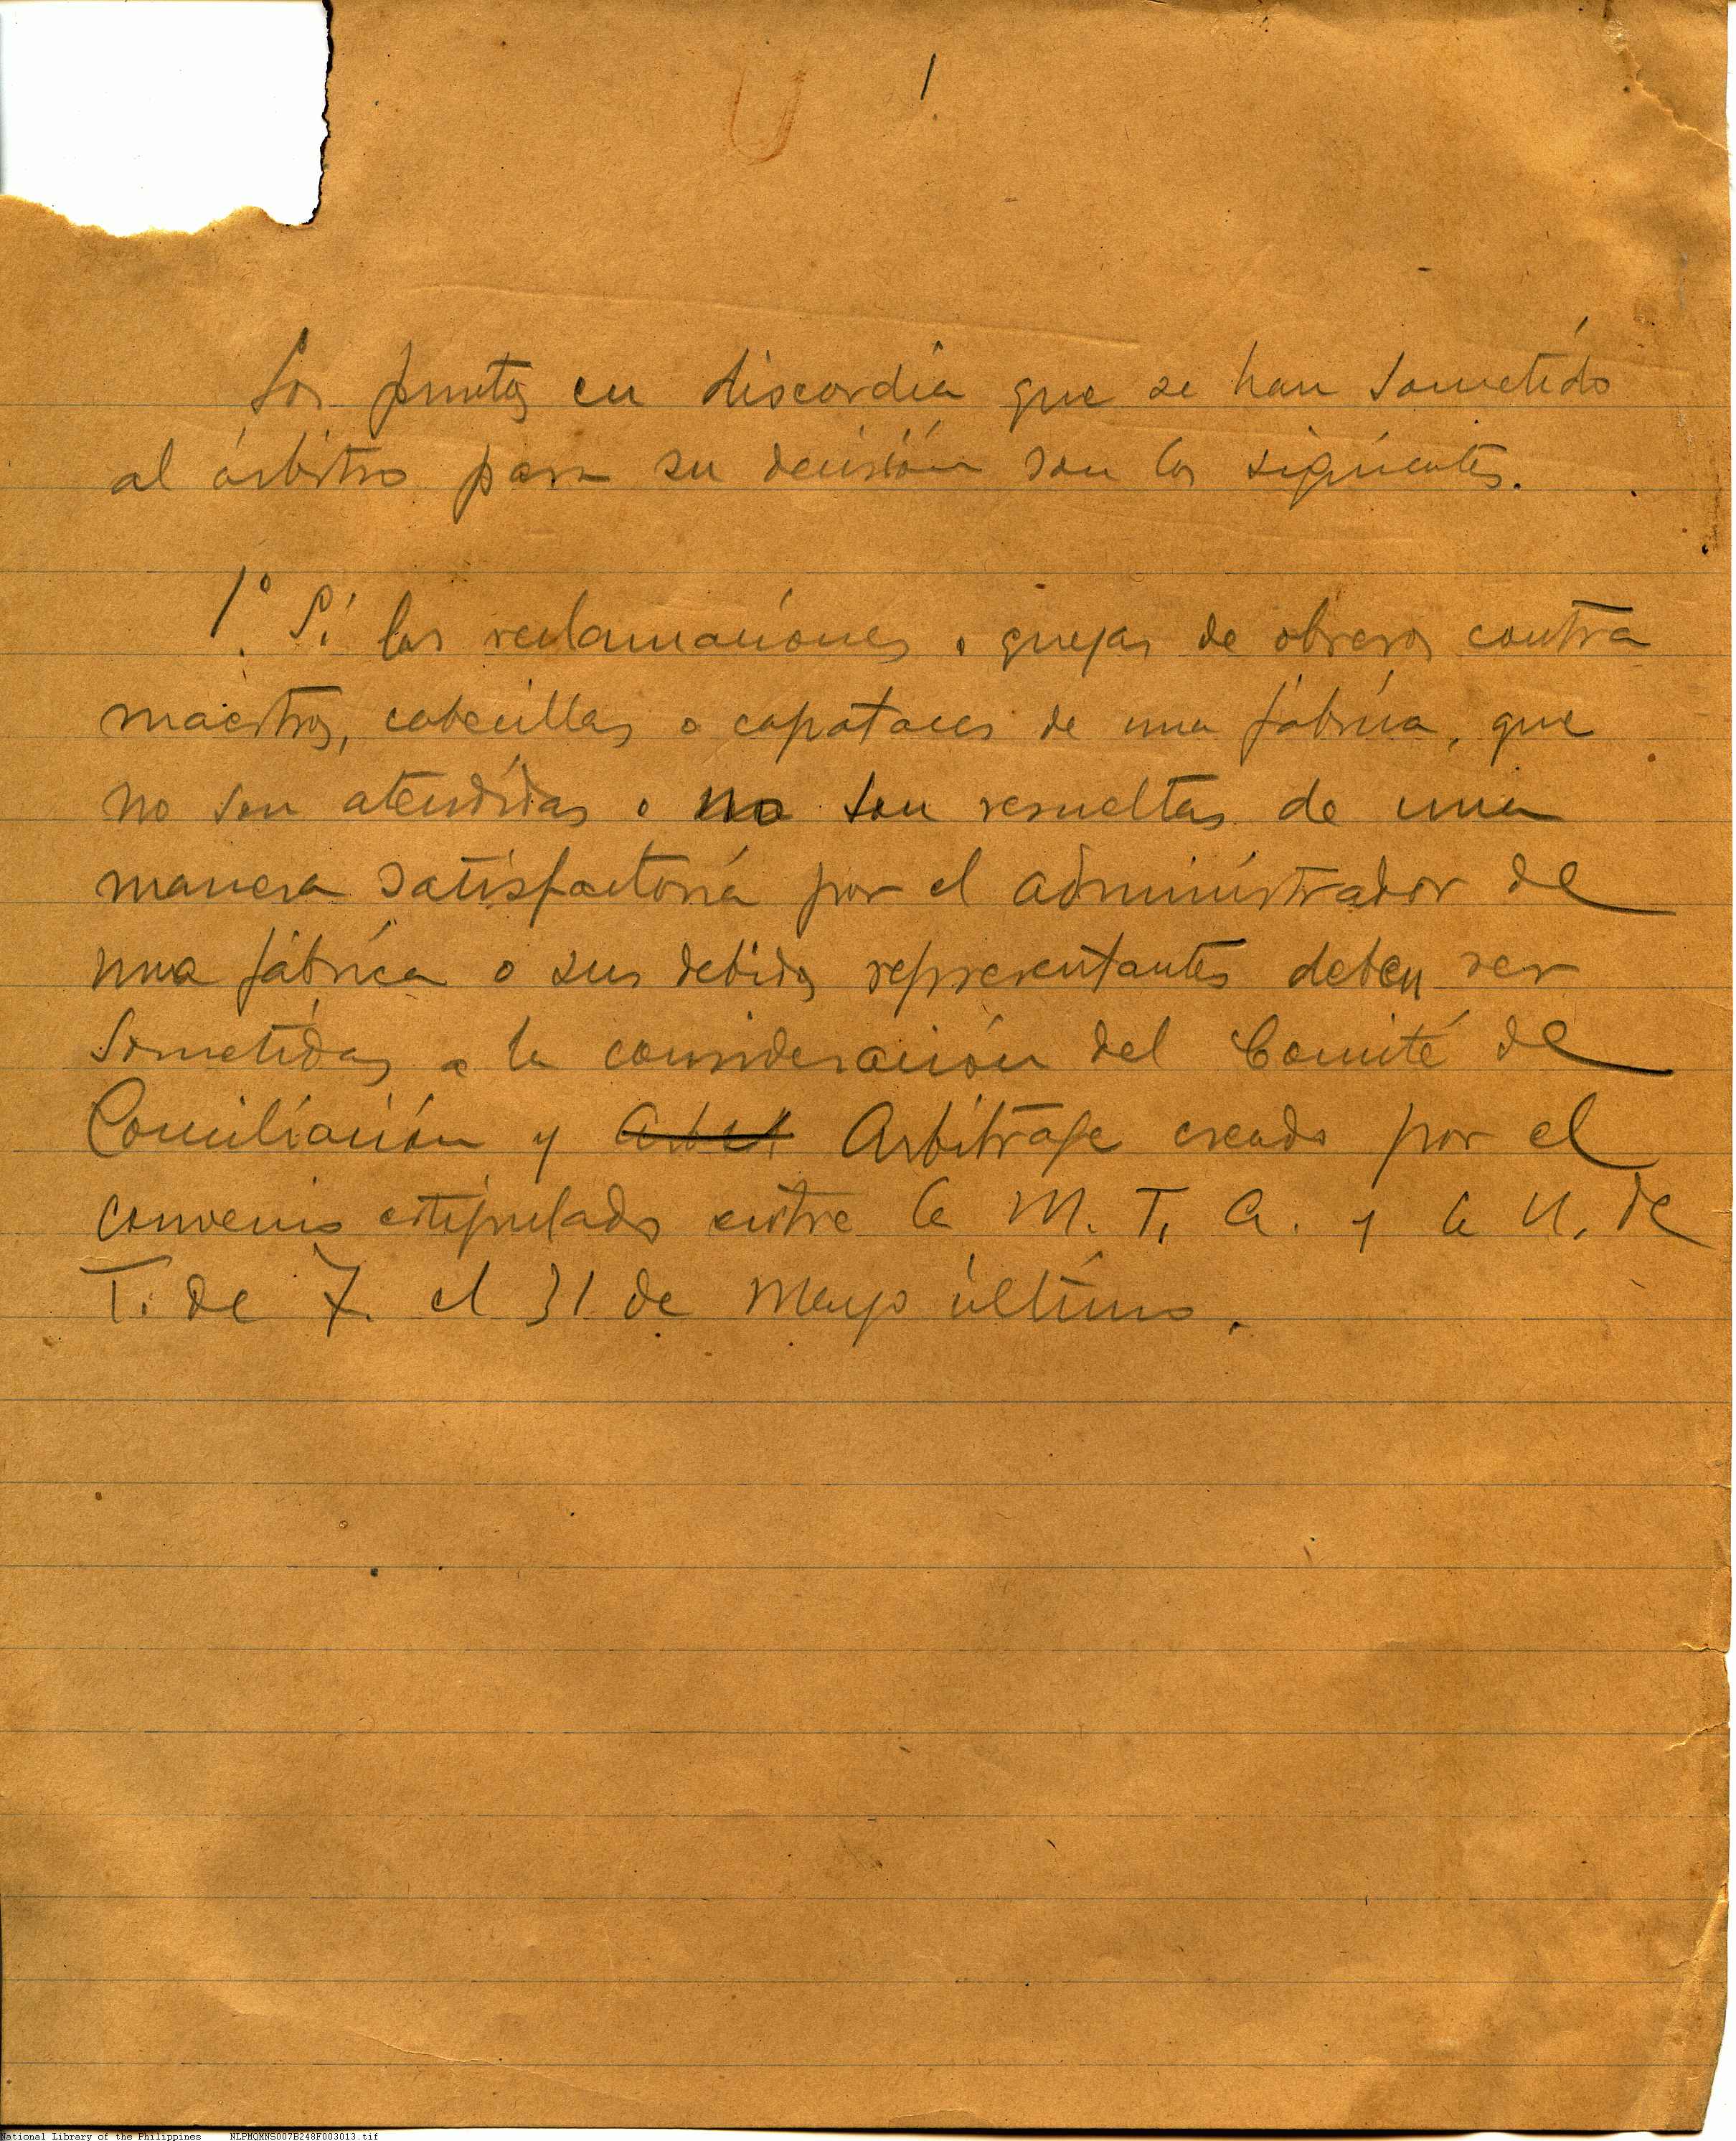 1
Los puntos en discordia que se han sometido
al árbitro para su decisión son los siguientes.
1º Si las reclamaciones o quejas de obreros contra
maestros, cabecillas o capataces de una fábrica, que
no son atendidas o no son resueltas de una
manera satisfactoria por el administrador de
una fábrica o sus debidos representantes deben ser
sometidas a la consideración del Comité de
Conciliación y Arbitraje creado por el
convenio estipulado entre la M. T. A. y la U. de
T. de F. el 31 de Mayo último.
National Library of the Philippines NLPMQMNS007B248F003013.tif